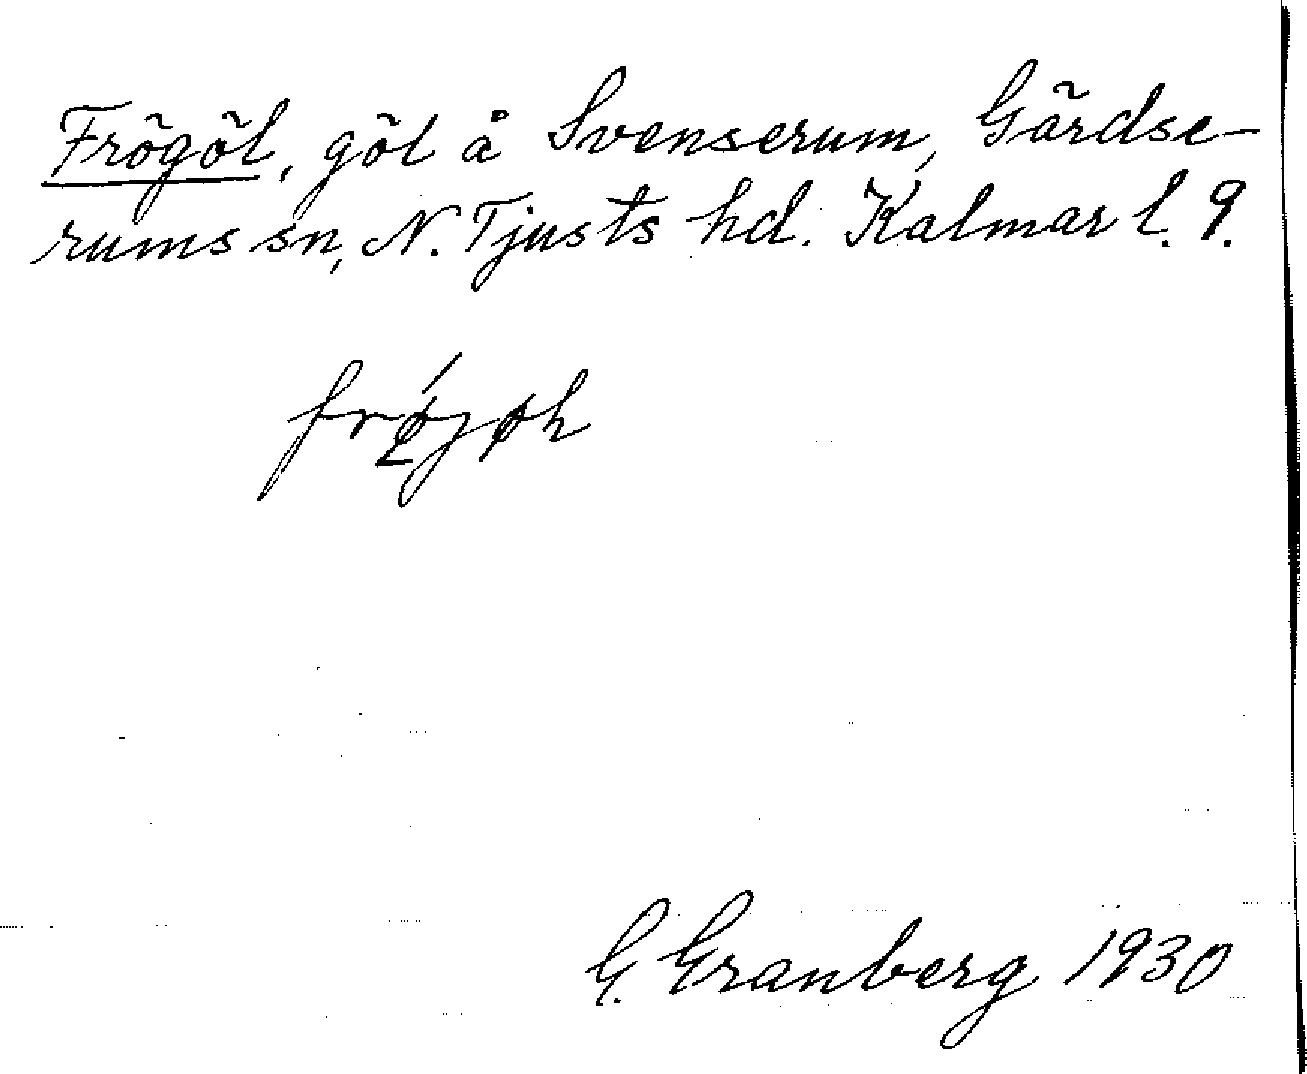 Frögöl, göl å Svenserum, Gärdse-
rums sn, N. Tjusts hd. Kalmar l. 9.
G. Granberg 1930